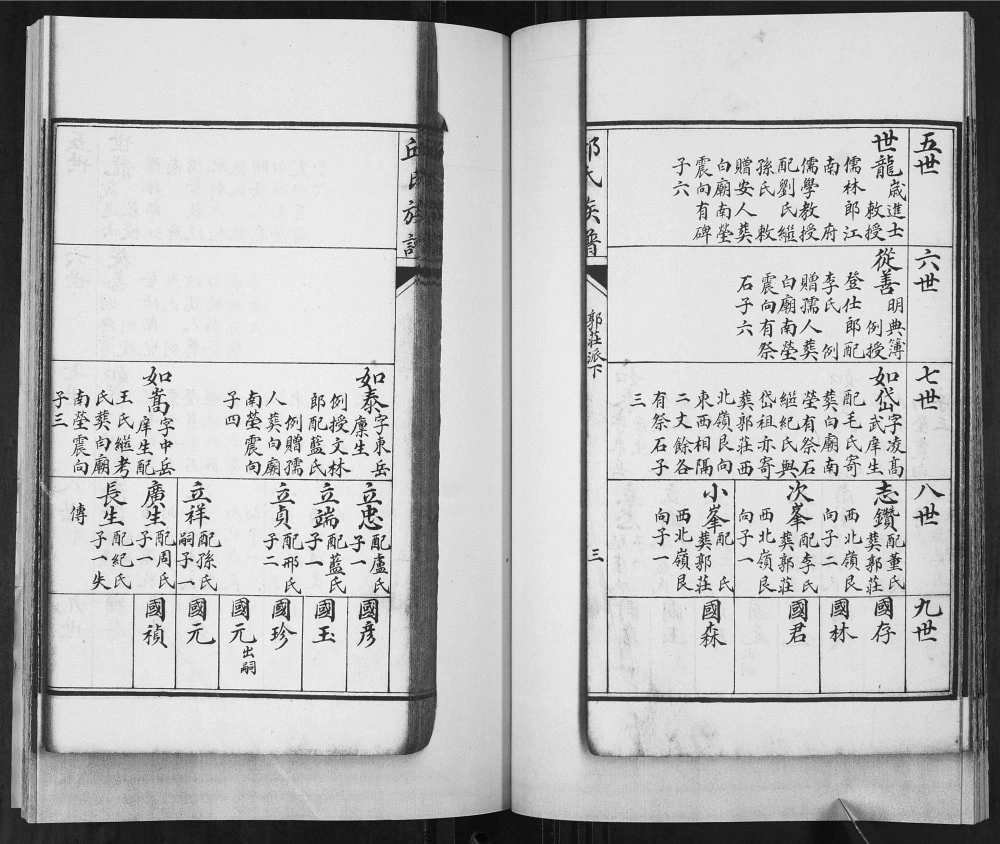 五世
世龍歲進士
敕授
儒林郎江
南　府
儒學教授
配劉氏繼
孫氏敕
贈安人葬
白廟南塋
震向有碑
子六
六世
從善明典簿
例授
登仕郎配
李氏　例
贈孺人葬
白廟南塋
震向有祭
石子六
七世
如岱字凌髙
武庠生
配毛氏寄
葬白廟南
塋有祭石
繼紀氏與
岱祖亦寄
葬郭莊西
北嶺艮向
東西相隔
二丈餘各
有祭石子
三
八世
志鑽配董氏
葬郭莊
西北嶺艮
向子二
次峯配李氏
葬郭莊
西北嶺艮
向子一
小峯配　氏
葬郭莊
西北嶺艮
向子一
九世
國存
國林
國君
國森
邱氏族譜
郭莊派下
三
邱氏族譜
如泰字東岳
廪生
例授文林
郎配藍氏
例贈孺
人葬白廟
南塋震向
子四
如嵩字中岳
庠生配
王氏繼考
氏葬白廟
南塋震向
子三
立忠配盧氏
子一
立端配藍氏
子一
立貞配邢氏
子二
立祥配孫氏
嗣子一
廣生配周氏
子一
長生配紀氏
子一失
傳
國彦
國玉
國珍
國元出嗣
國元
國禎